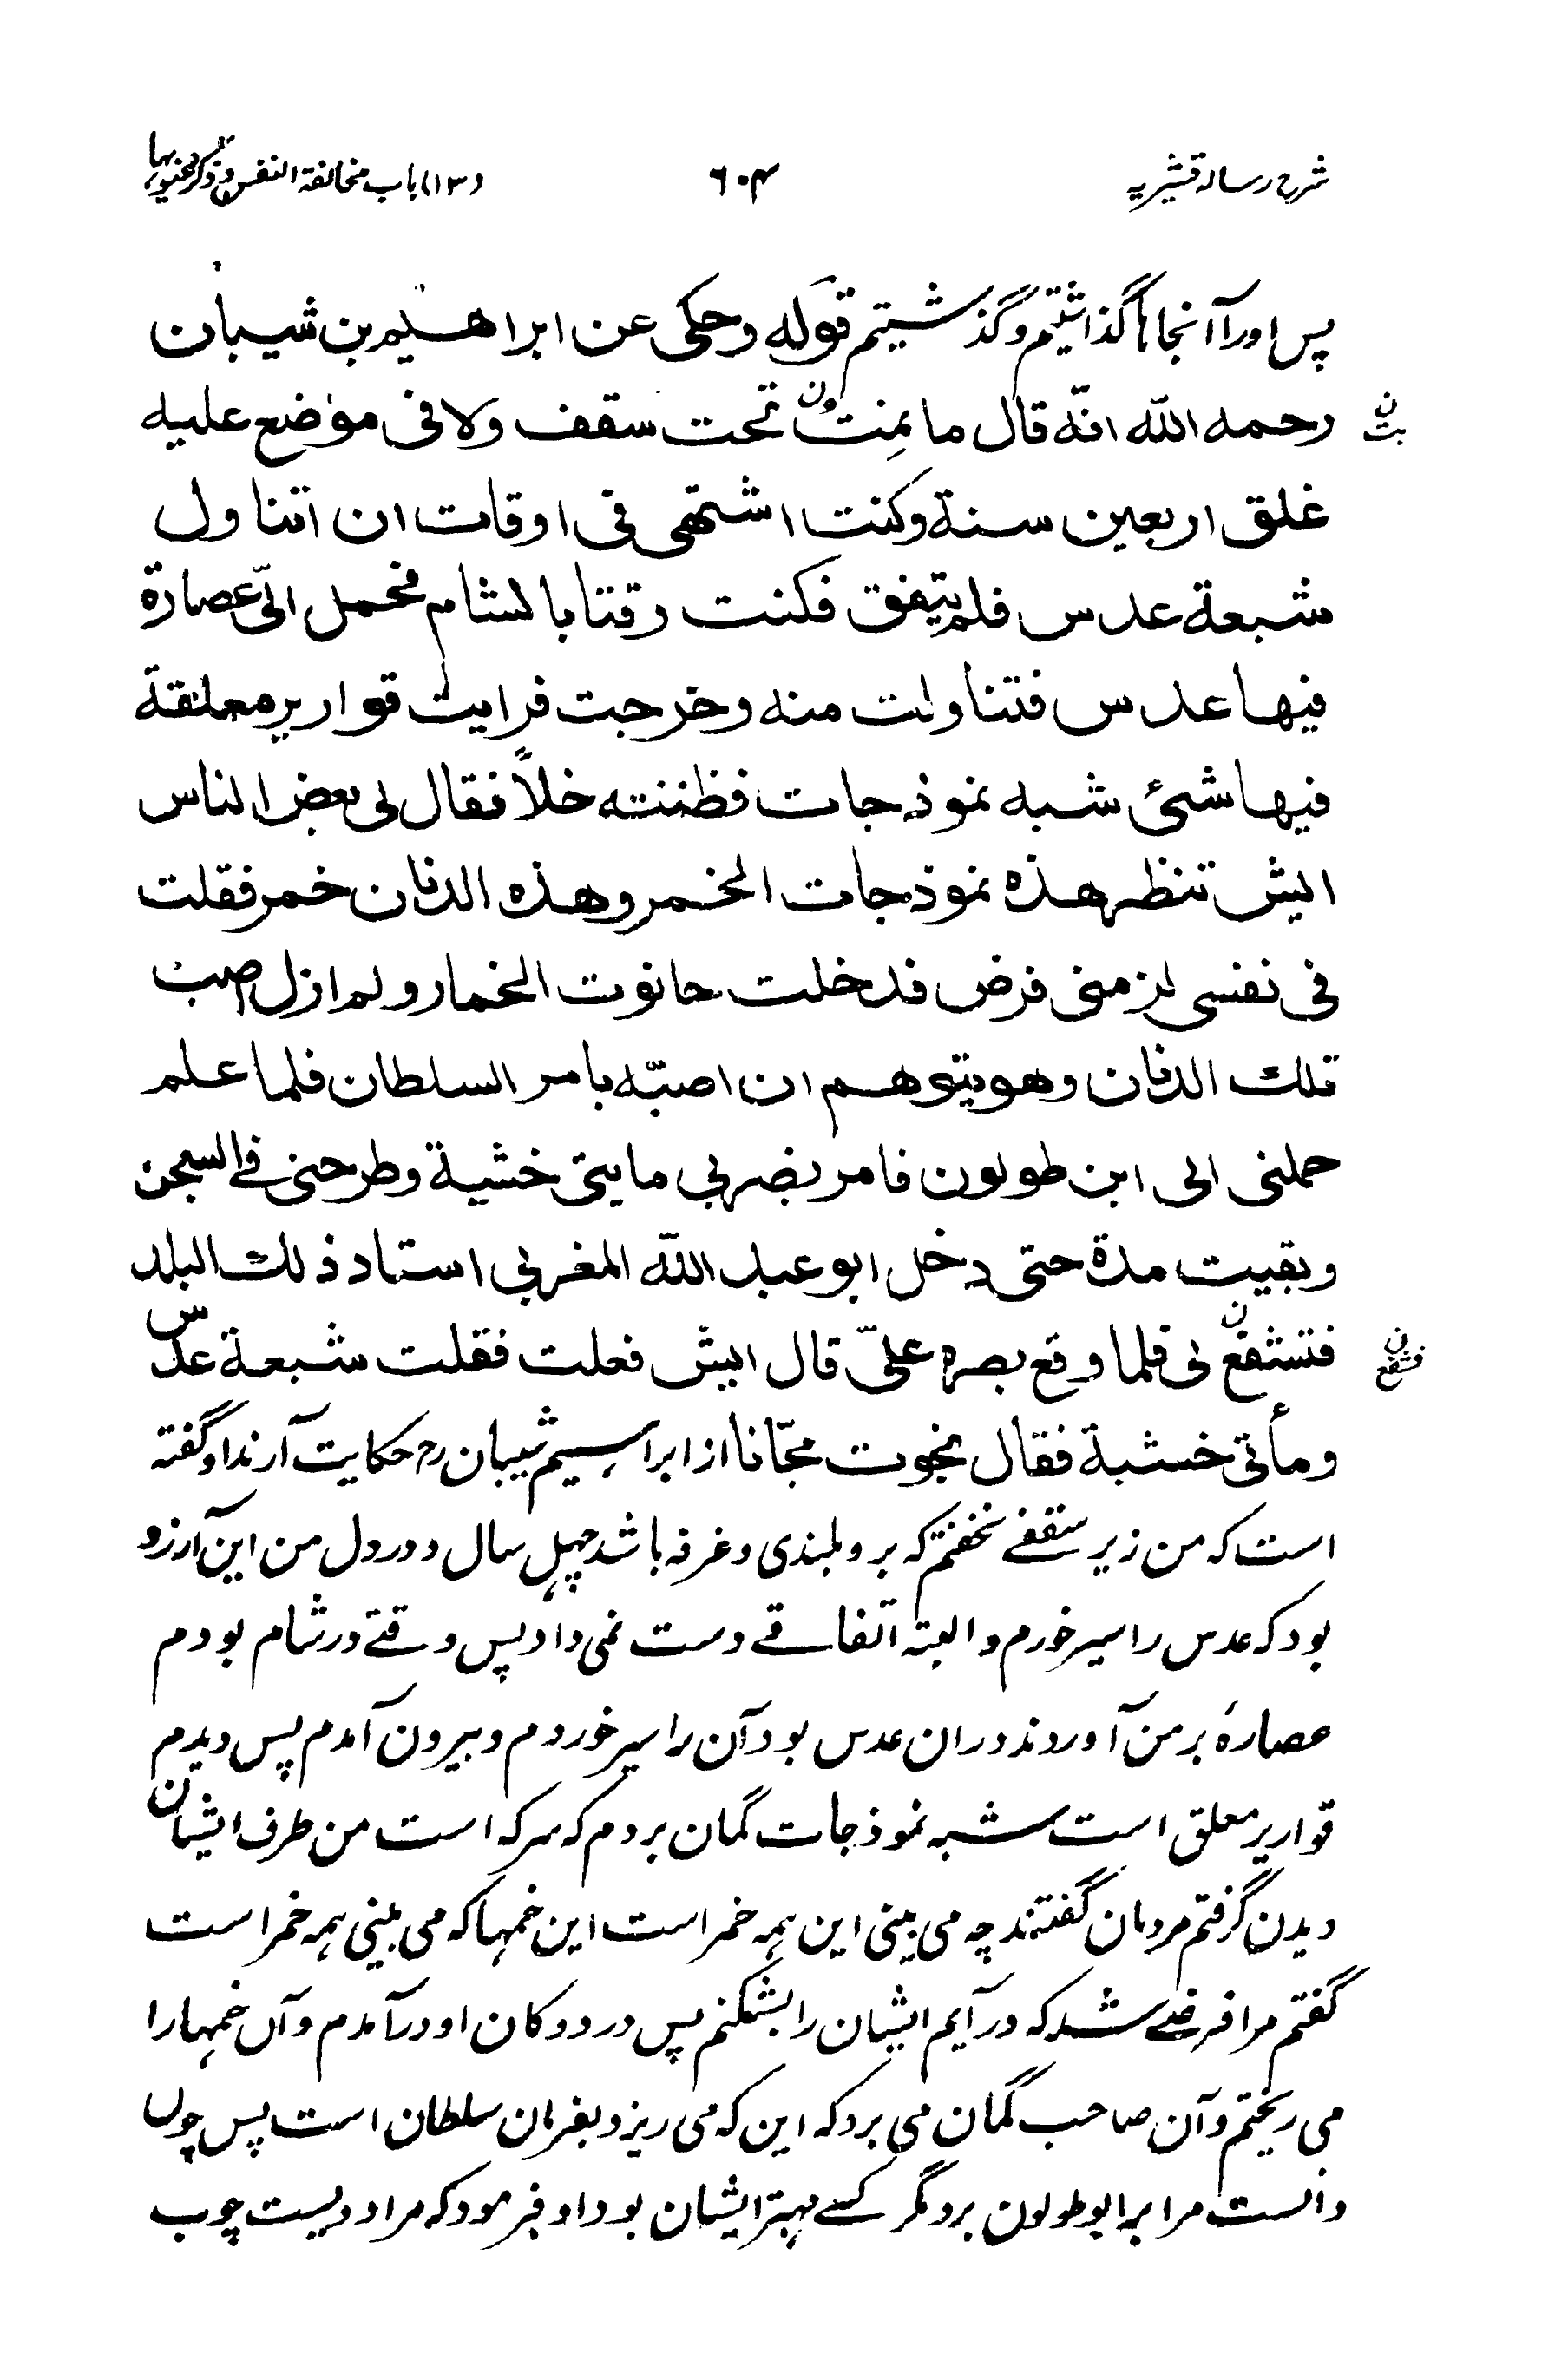 شرح رسالہ قشیریہ
۶۰۴
(۱۳) باب مخالفة النفس و ذکر عیوبها
پس اورا آنجا ہا گذاشتیم و گذشتیم قوله وحکی عن ابراهیم بن شیبان
رحمه الله انّه قال ما نِمتُ تحت سقف ولا فی موضع علیه
بت
غلق اربعین سنة وکنت اشتهی فی اوقات ان اتناول
شبعة عدس فلم یتفق فکنت وقتا بالشام فحمل الیّ عصارة
فیها عدس فتناولت منه وخرجت فرایت قواریر معلقة
فیها شئ شبه نموذجات فظننته خلاً فقال لی بعض الناس
ایش تنظر هذه نموذجات الخمر وهذه الدنان خمر فقلت
فی نفسی لزمنی فرض فدخلت حانوت الخمار ولم ازل اصب
تلك الدنان وهو یتوهم ان اصبّه بامر السلطان فلما علم
حملنی الی ابن طولون فامر بضربی مایتی خشبة وطرحنی فی السجن
وبقیت مدة حتی دخل ابو عبد الله المغربی استاد ذلك البلد
فتشفع لی فلما وقع بصره علیّ قال ایش فعلت فقلت شبعة عدس
فشفع
ومأتی خشبة فقال نجوت مجّانا از ابراہیم شیبان رح حکایت آرند او گفته
است که من زیر سقفے نخفتم که برو بلندی و غرفه باشد چہل سال و در دل من این آرزو
بود که عدس را سیر خورم و البته اتفاقے دست نمی داد پس وقتے در شام بودم
عصارهٔ بر من آوردند دران عدس بود آن را سیر خوردم و بیرون آمدم پس دیدم
قواریر معلق است شبه نموذجات گمان بردم که سرکه است من طرف ایشان
دیدن گرفتم مردمان گفتند چه می بینی این ہمه خمر است این خمہا که می بینی ہمه خمر است
گفتم مرا فرضے شد که در آیم ایشان را بشکنم پس در دوکان او در آمدم و آں خمہا را
می ریختم و آن صاحب گمان می برد که این که می ریزد بفرمان سلطان است پس چوں
دانست مرا برابو طولون برد مگر کسے مہتر ایشان بود او فرمود که مرا دویست چوب